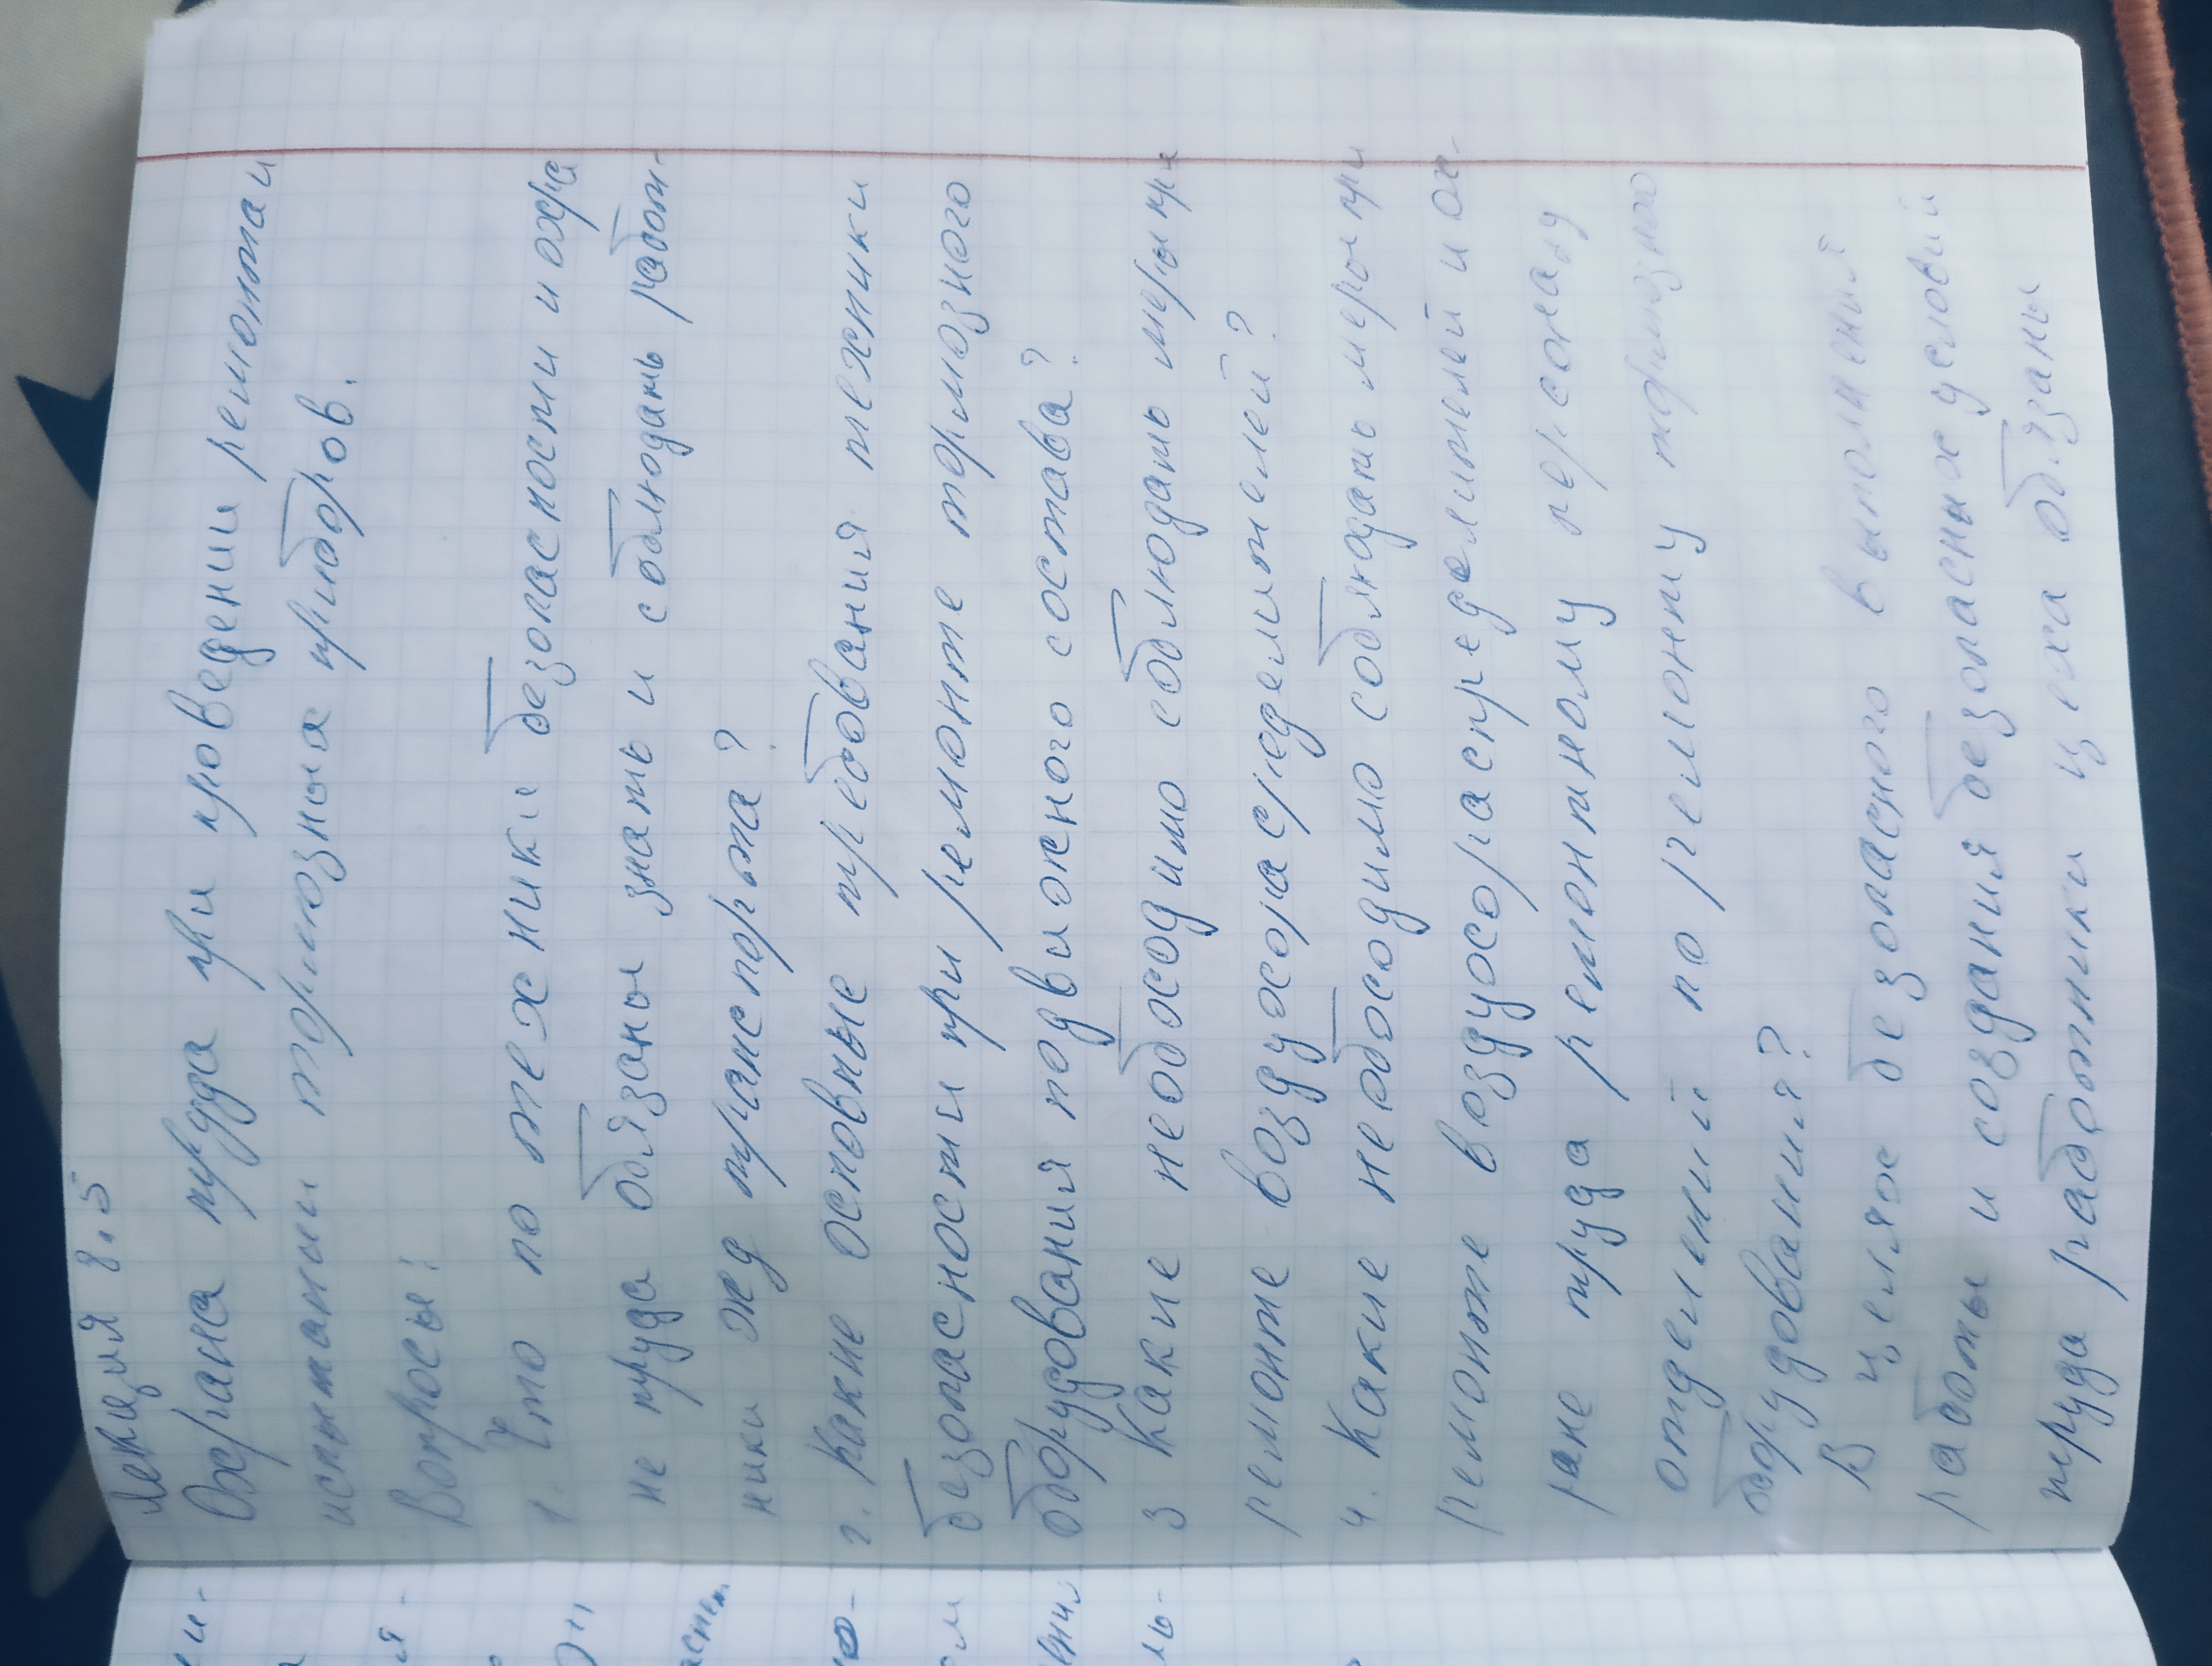 Лекция 8.5
Охрана труда при проведении ремонта и
испытании тормозных приборов.
Вопросы:
1. Что по технике безопасности и охра
не труда обязаны знать и соблюдать работ-
ники жд транспорта?
2. Какие основные требования техники
безопасности при ремонте тормозного
оборудования подвижного состава?
3 Какие необходимо соблюдать меры при
ремонте воздухораспределителей?
4. Какие необходимо соблюдать меры при
ремонте воздухораспределителей и ох-
ране труда ремонтному персоналу
отделений по ремонту тормозного
оборудования?
В целях безопасного выполнения
работы и создания безопасных условий
труда работники цеха обязаны